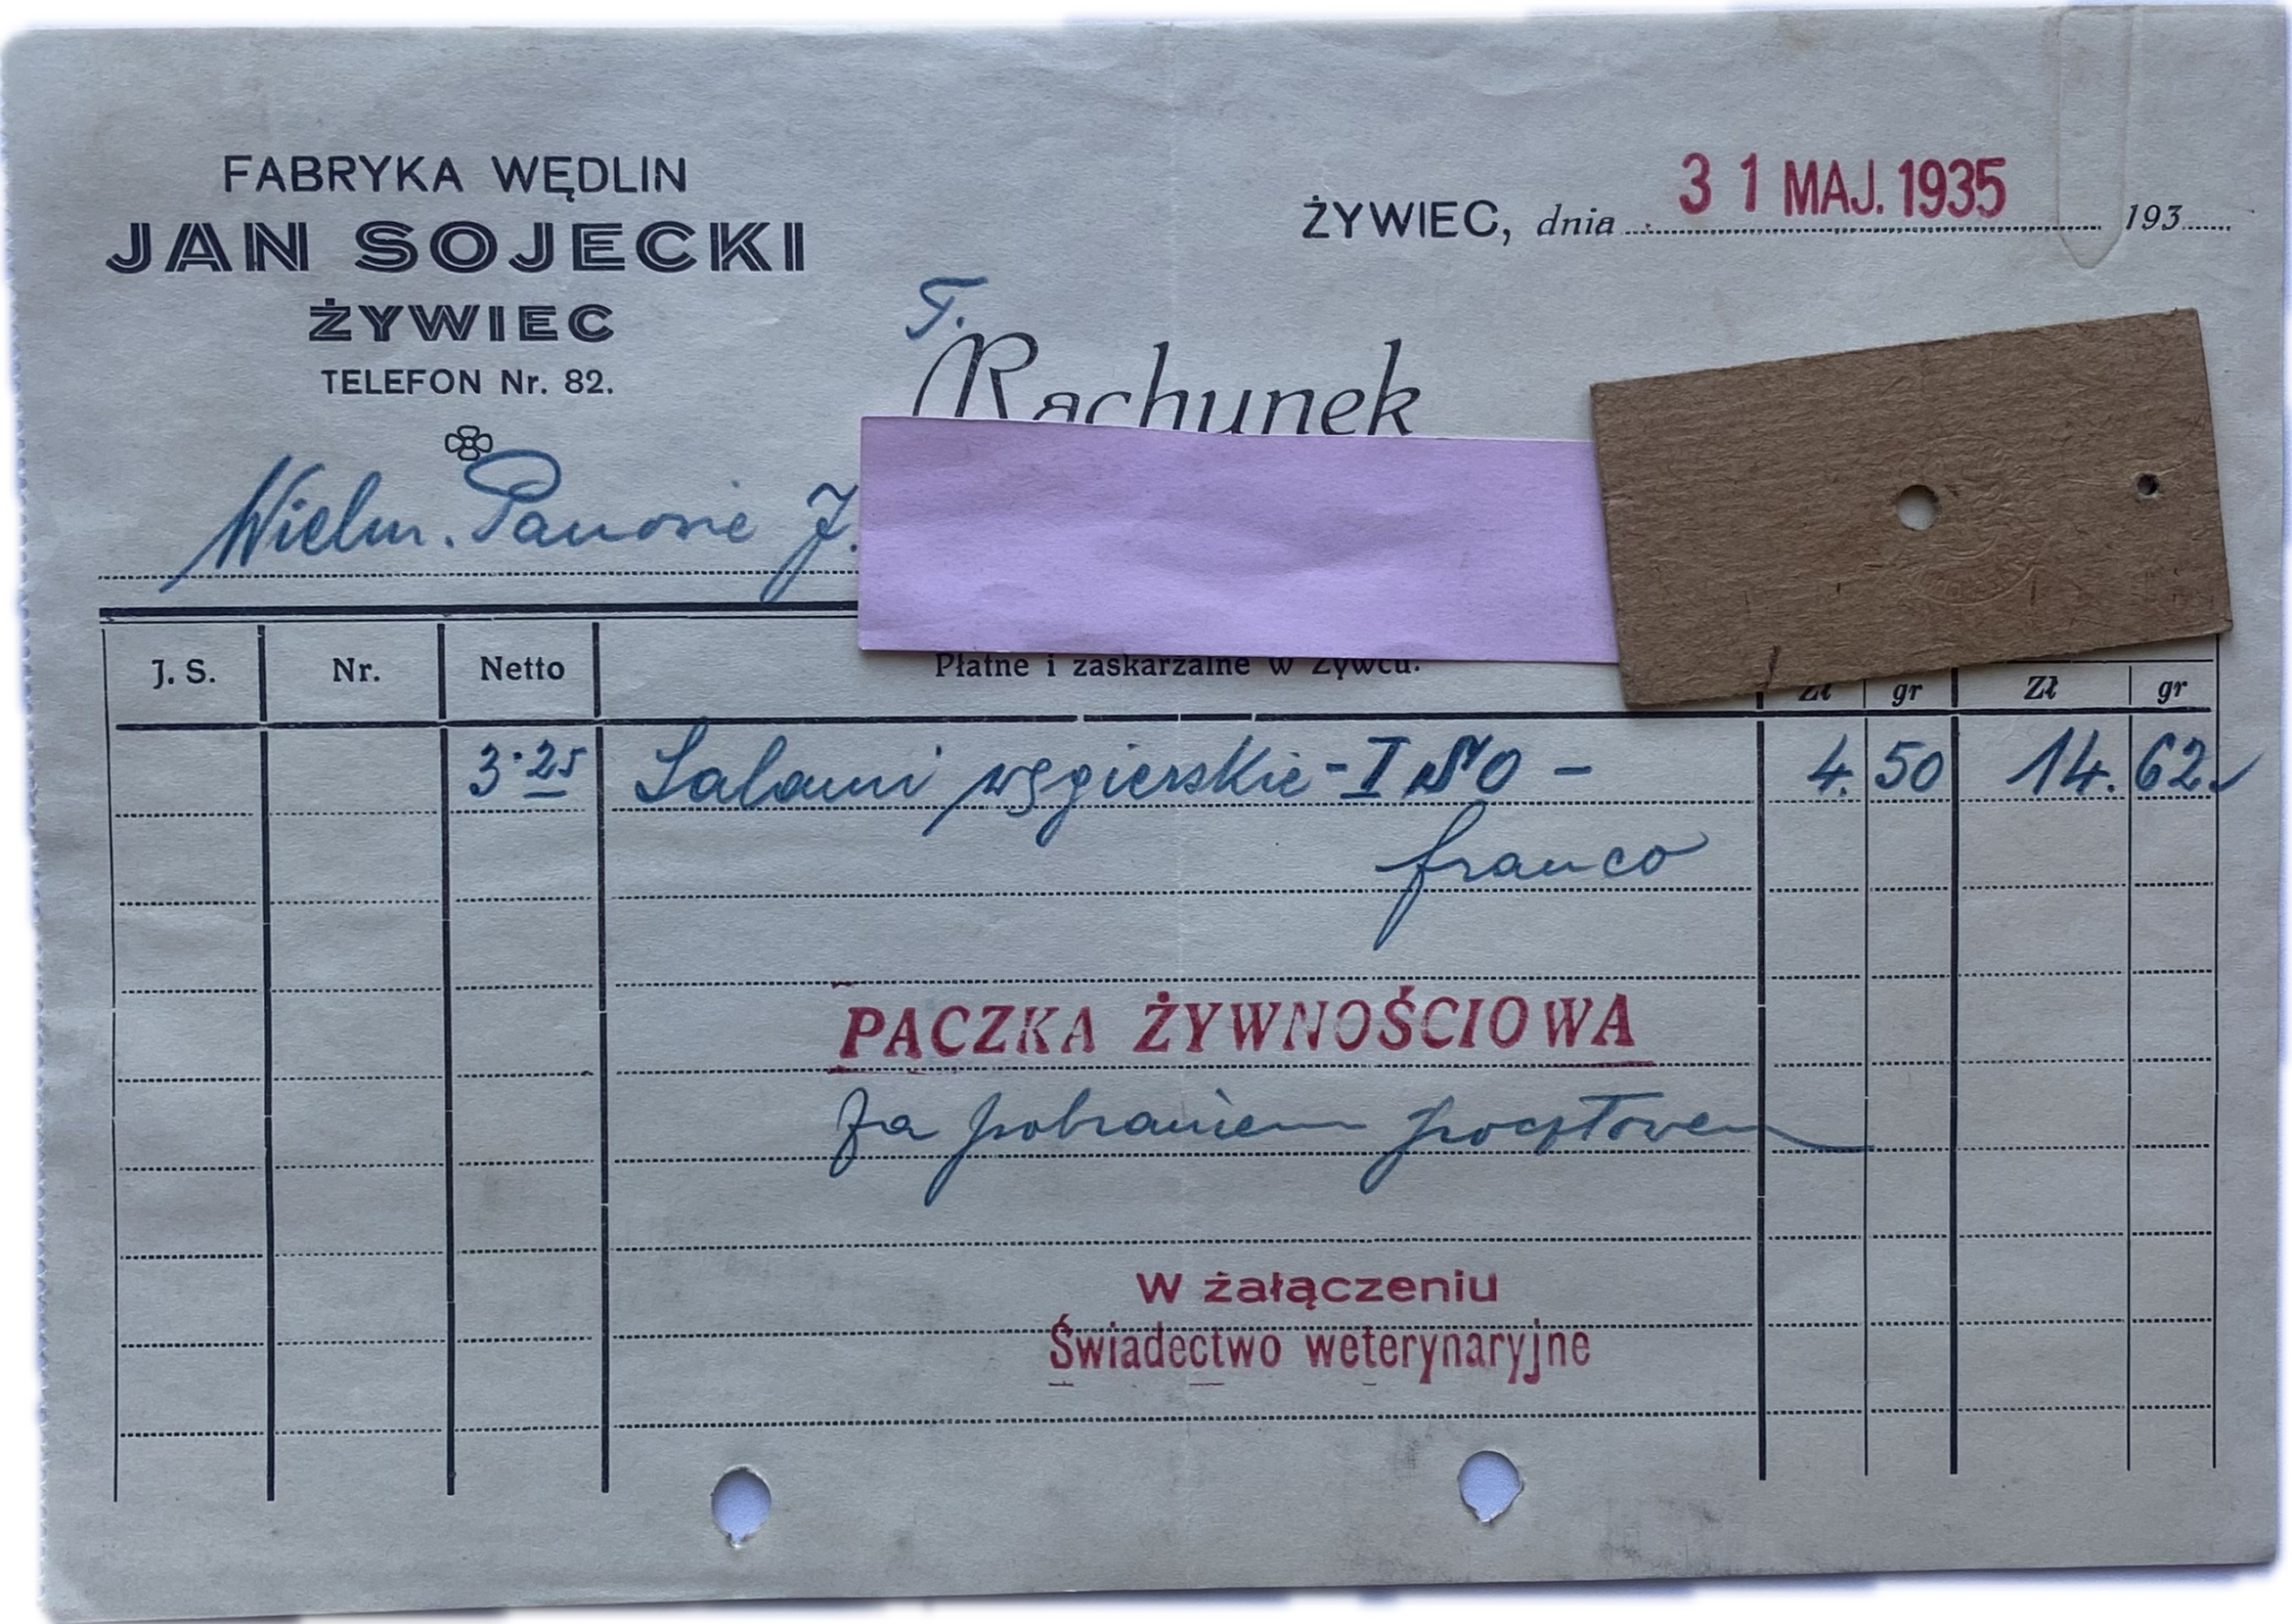 FABRYKA WĘDLIN
JAN SOJECKI
ŻYWIEC
TELEFON Nr. 82.
ŻYWIEC, dnia 31 MAJ. 1935 193
Rachunek
Wielm. Panowie J.
J. S. Nr. Netto Płatne i zaskarżalne w Żywcu. Zł gr Zł gr
3.25 Salami węgierskie - I 4.50 14.62
franco
PACZKA ŻYWNOŚCIOWA
za pobraniem pocztowem
W żałączeniu
Świadectwo weterynaryjne